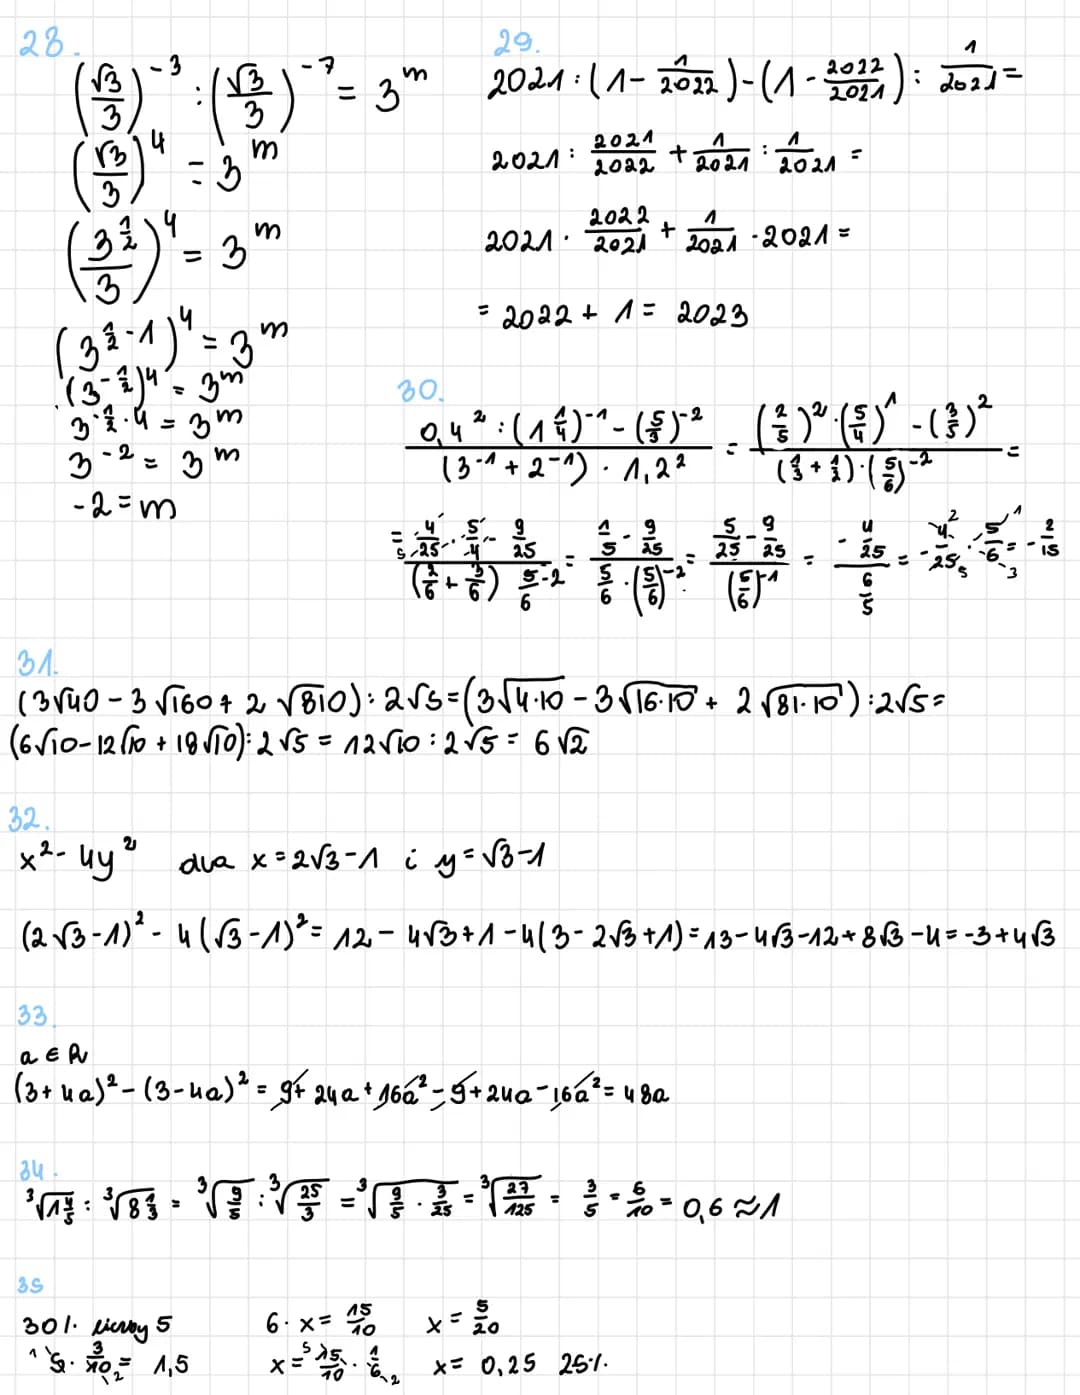 28.
(√3/3)^-3 : (√3/3)^-7 = 3^m
(√3/3)^4 = 3^m
(3^½/3)^4 = 3^m
(3^(½-1))^4 = 3^m
(3^-½)^4 = 3^m
3^(-½·4) = 3^m
3^-2 = 3^m
-2 = m
29.
2021 : (1 - 1/2022) - (1 - 2022/2021) : 1/2021 =
2021 : 2021/2022 + 1/2021 : 1/2021 =
2021 · 2022/2021 + 1/2021 · 2021 =
= 2022 + 1 = 2023
30.
(0,4² : (1 1/4)^-1 - (5/3)^-2) / ((3^-1 + 2^-1) · 1,2²) = ((2/5)² · (5/4)^1 - (3/5)²) / ((1/3 + 1/2) · (5/6)^-2) =
= (4/25 · 5/4 - 9/25) / ((2/6 + 3/6) 5/6^-2) = (1/5 - 9/25) / (5/6 · (5/6)^-2) = (5/25 - 9/25) / (5/6)^-1 = (-4/25) / (6/5) = -4/25 · 5/6 = -2/15
31.
(3√40 - 3√160 + 2√810) : 2√5 = (3√4·10 - 3√16·10 + 2√81·10) : 2√5 =
(6√10 - 12√10 + 18√10) : 2√5 = 12√10 : 2√5 = 6√2
32.
x² - 4y² dla x = 2√3 - 1 i y = √3 - 1
(2√3 - 1)² - 4(√3 - 1)² = 12 - 4√3 + 1 - 4(3 - 2√3 + 1) = 13 - 4√3 - 12 + 8√3 - 4 = -3 + 4√3
33.
a ∈ R
(3 + 4a)² - (3 - 4a)² = 9 + 24a + 16a² - 9 + 24a - 16a² = 48a
34.
³√1 4/5 : ³√8 1/3 = ³√9/5 : ³√25/3 = ³√9/5 · 3/25 = ³√27/125 = 3/5 = 6/10 = 0,6 ≈ 1
35
30% liczby 5
5 · 3/10 = 1,5
6 · x = 15/10
x = 15/10 · 1/6
x = 5/20
x = 0,25 25%